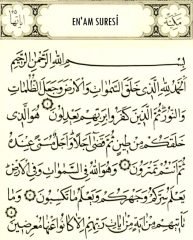 EN'AM SURESİ
بِسْمِ اللّٰهِ الرَّحْمٰنِ الرَّحِيمِ
اَلْحَمْدُ لِلّٰهِ الَّذِى خَلَقَ السَّمٰوَاتِ وَالْاَرْضَ وَجَعَلَ الظُّلُمَاتِ
وَالنُّورَ ثُمَّ الَّذِينَ كَفَرُوا بِرَبِّهِمْ يَعْدِلُونَ هُوَ الَّذِى
خَلَقَكُمْ مِنْ طِينٍ ثُمَّ قَضٰى اَجَلًا وَاَجَلٌ مُسَمًّى عِنْدَهُ
ثُمَّ اَنْتُمْ تَمْتَرُونَ وَهُوَ اللّٰهُ فِى السَّمٰوَاتِ وَفِى الْاَرْضِ
يَعْلَمُ سِرَّكُمْ وَجَهْرَكُمْ وَيَعْلَمُ مَا تَكْسِبُونَ وَمَا
تَأْتِيهِمْ مِنْ اٰيَةٍ مِنْ اٰيَاتِ رَبِّهِمْ اِلَّا كَانُوا عَنْهَا مُعْرِضِينَ